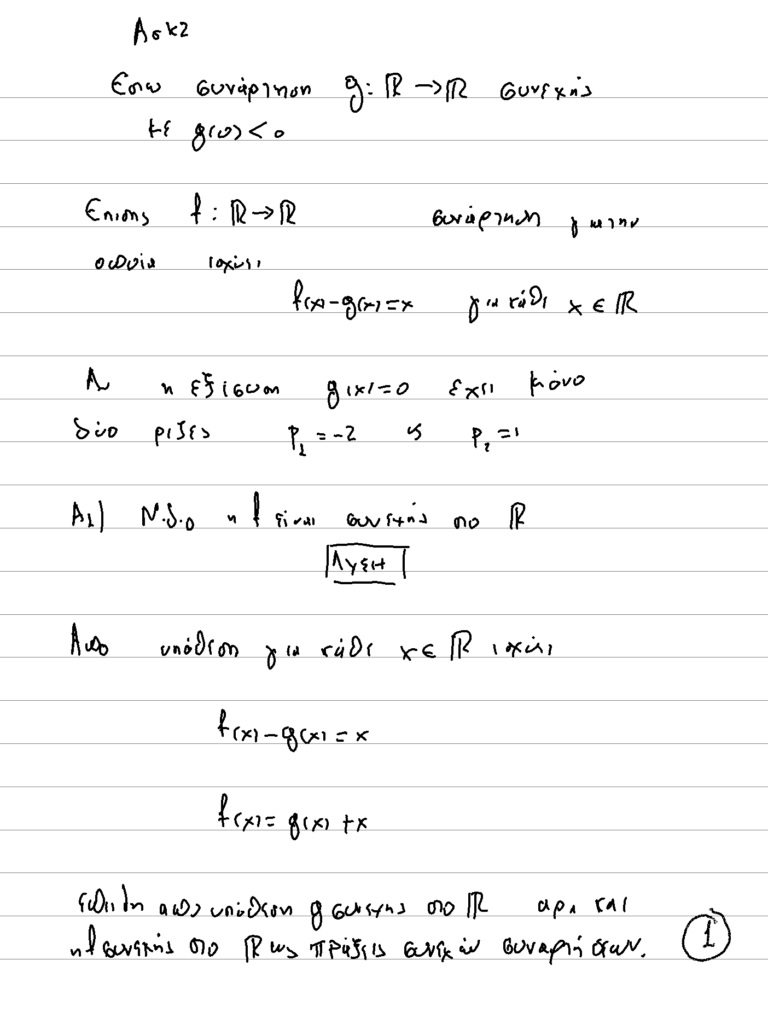 Ασκ2
Εστω συνάρτηση g: ℝ → ℝ συνεχής
με g(0) < 0
Επισης f : ℝ → ℝ συνάρτηση για την
οποία ισχύει
f(x) - g(x) = x για κάθε x ∈ ℝ
Αν η εξίσωση g(x) = 0 έχει μόνο
δύο ριζες ρ₁ = -2 κ ρ₂ = 1
Α1) Ν.δ.ο η f είναι συνεχής στο ℝ
ΛΥΣΗ
Απο υπόθεση για κάθε x ∈ ℝ ισχύει
f(x) - g(x) = x
f(x) = g(x) + x
επειδη απο υπόθεση g συνεχης στο ℝ αρα και
η f συνεχής στο ℝ ως πράξεις συνεχών συναρτήσεων.
1